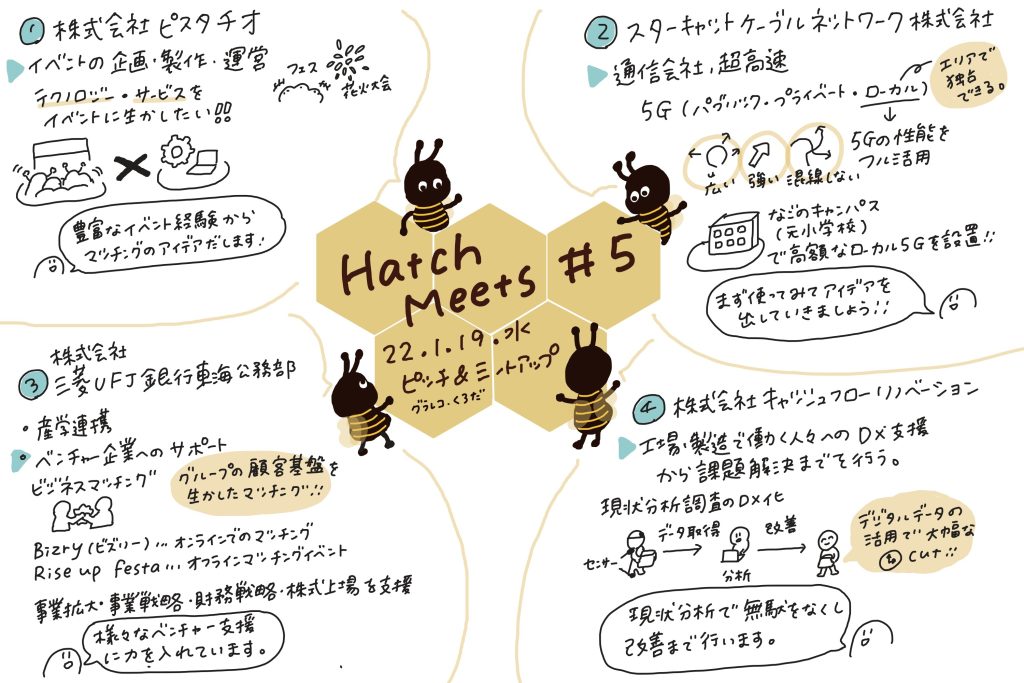 Hatch
Meets #5
22.1.19.水
ピッチ&ミートアップ
グラレコ.くろだ
① 株式会社 ピスタチオ
イベントの 企画・製作・運営
フェス
花火大会
テクノロジー・サービスを
イベントに生かしたい!!
豊富なイベント経験から
マッチングのアイデアだします!
② スターキャットケーブルネットワーク株式会社
通信会社,超高速
5G (パブリック・プライベート・ローカル)
エリアで
独占
できる。
5Gの性能を
フル活用
広い 強い 混線しない
なごのキャンパス
(元小学校)
で高額なローカル5Gを設置!!
まず使ってみてアイデアを
出していきましょう!!
③ 株式会社
三菱UFJ銀行東海公務部
・産学連携
・ベンチャー企業へのサポート
ビジネスマッチング
グループの顧客基盤を
生かしたマッチング!!
Bizry(ビズリー)...オンラインでのマッチング
Rise up festa...オフラインマッチングイベント
事業拡大・事業戦略・財務戦略・株式上場を支援
様々なベンチャー支援
に力を入れています。
④ 株式会社 キャッシュフローリノベーション
工場・製造で働く人々へのDX支援
から課題解決までを行う。
現状分析調査のDX化
センサー
データ取得
分析
改善
デジタルデータの
活用で大幅な
cut!!
現状分析で無駄をなくし
改善まで行います。